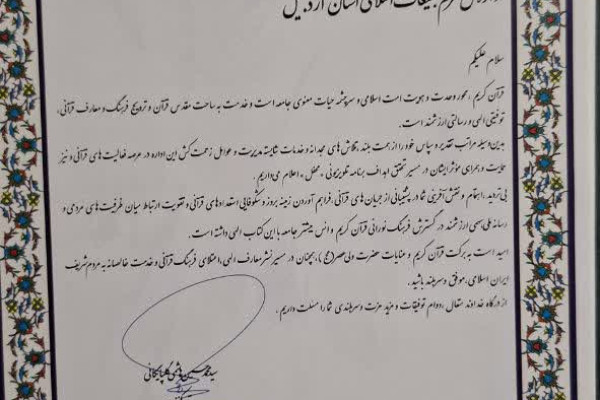 تبلیغات اسلامی استان اردبیل
سلام علیکم
قرآن کریم، محور وحدت و هویت امت اسلامی و سرچشمه حیات معنوی جامعه است و خدمت به ساحت مقدس قرآن و ترویج فرهنگ و معارف قرآنی،
توفیقی الهی و رسالتی ارزشمند است.
بدین‌وسیله مراتب تقدیر و سپاس خود را از همت بلند، تلاش‌های مجدانه و خدمات شایسته مدیریت و عوامل زحمت‌کش این اداره در عرصه فعالیت‌های قرآنی و نیز
حمایت و همراهی مؤثر ایشان در مسیر تحقق اهداف برنامه تلویزیونی «محفل» اعلام می‌داریم.
بی‌تردید، اهتمام و نقش‌آفرینی شما در پشتیبانی از جریان‌های قرآنی، فراهم آوردن زمینه بروز و شکوفایی استعدادهای قرآنی و تقویت ارتباط میان ظرفیت‌های مردمی و
رسانه ملی، سهمی ارزشمند در گسترش فرهنگ نورانی قرآن کریم و انس بیشتر جامعه با این کتاب الهی داشته است.
امید است به برکت قرآن کریم و عنایات حضرت ولی‌عصر(عج)، همچنان در مسیر نشر معارف الهی، اعتلای فرهنگ قرآنی و خدمت خالصانه به مردم شریف
ایران اسلامی، موفق و سربلند باشید.
از درگاه خداوند متعال، دوام توفیقات و مزید عزت و سربلندی شما را مسئلت داریم.
سید محمد حسین هاشمی گلپایگانی